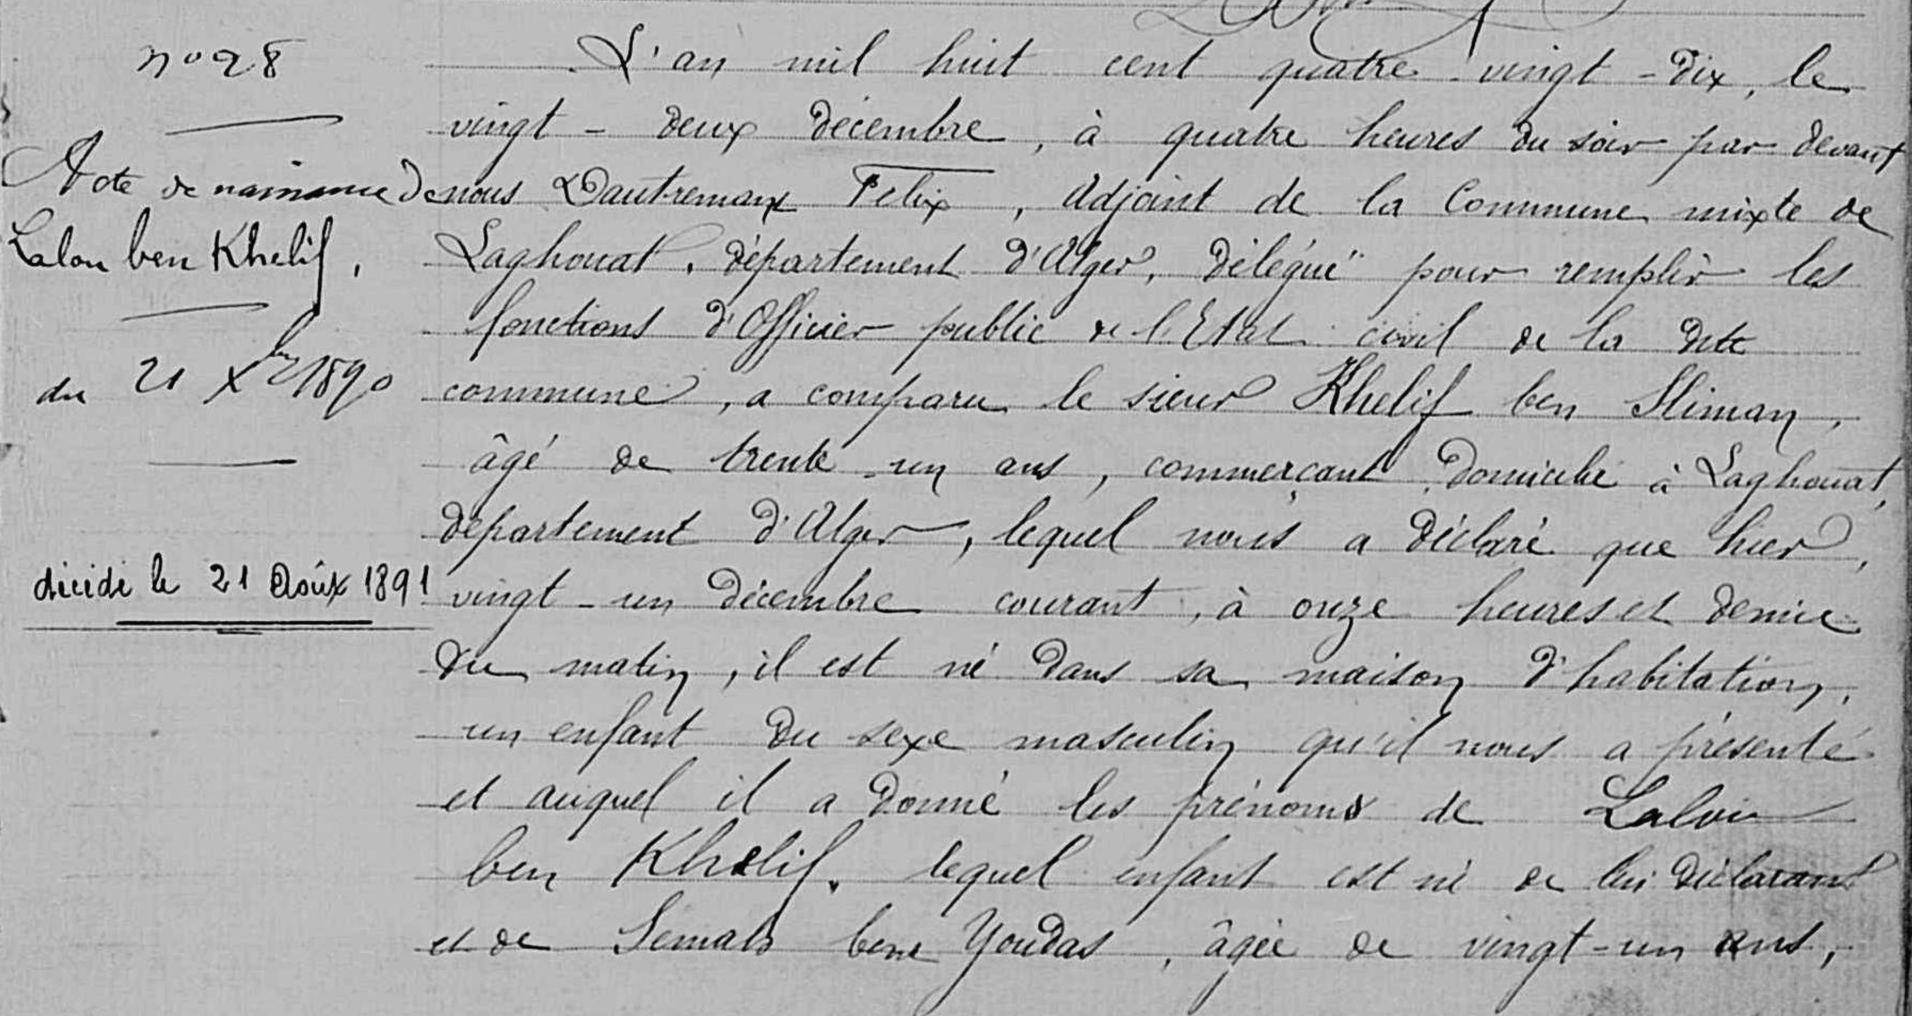 nº 28
Acte de naissance de
Lalou ben Khelif,
du 21 Xbre 1890
décédé le 21 Août 1891
L'an mil huit cent quatre vingt-dix, le
vingt-deux décembre, à quatre heures du soir par devant
nous Dautremaux Felix, Adjoint de la Commune mixte de
Laghouat, département d'Alger, délégué pour remplir les
fonctions d'Officier public de l'Etat civil de la dite
commune, a comparu le sieur Khelif ben Sliman,
âgé de trente-un ans, commerçant domicilié à Laghouat,
département d'Alger, lequel nous a déclaré que hier,
vingt-un décembre courant, à onze heures et demie
du matin, il est né dans sa maison d'habitation,
un enfant du sexe masculin qu'il nous a présenté
et auquel il a donné les prénoms de Lalou
ben Khelif, lequel enfant est né de lui déclarant
et de bent Youdas, âgée de vingt-un ans,